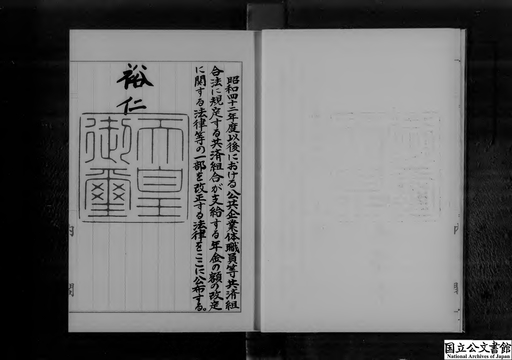 昭和四十二年度以後における公共企業体職員等共済組
合法に規定する共済組合が支給する年金の額の改定
に関する法律等の一部を改正する法律をここに公布する。
裕仁
天皇
御璽
国立公文書館
National Archives of Japan